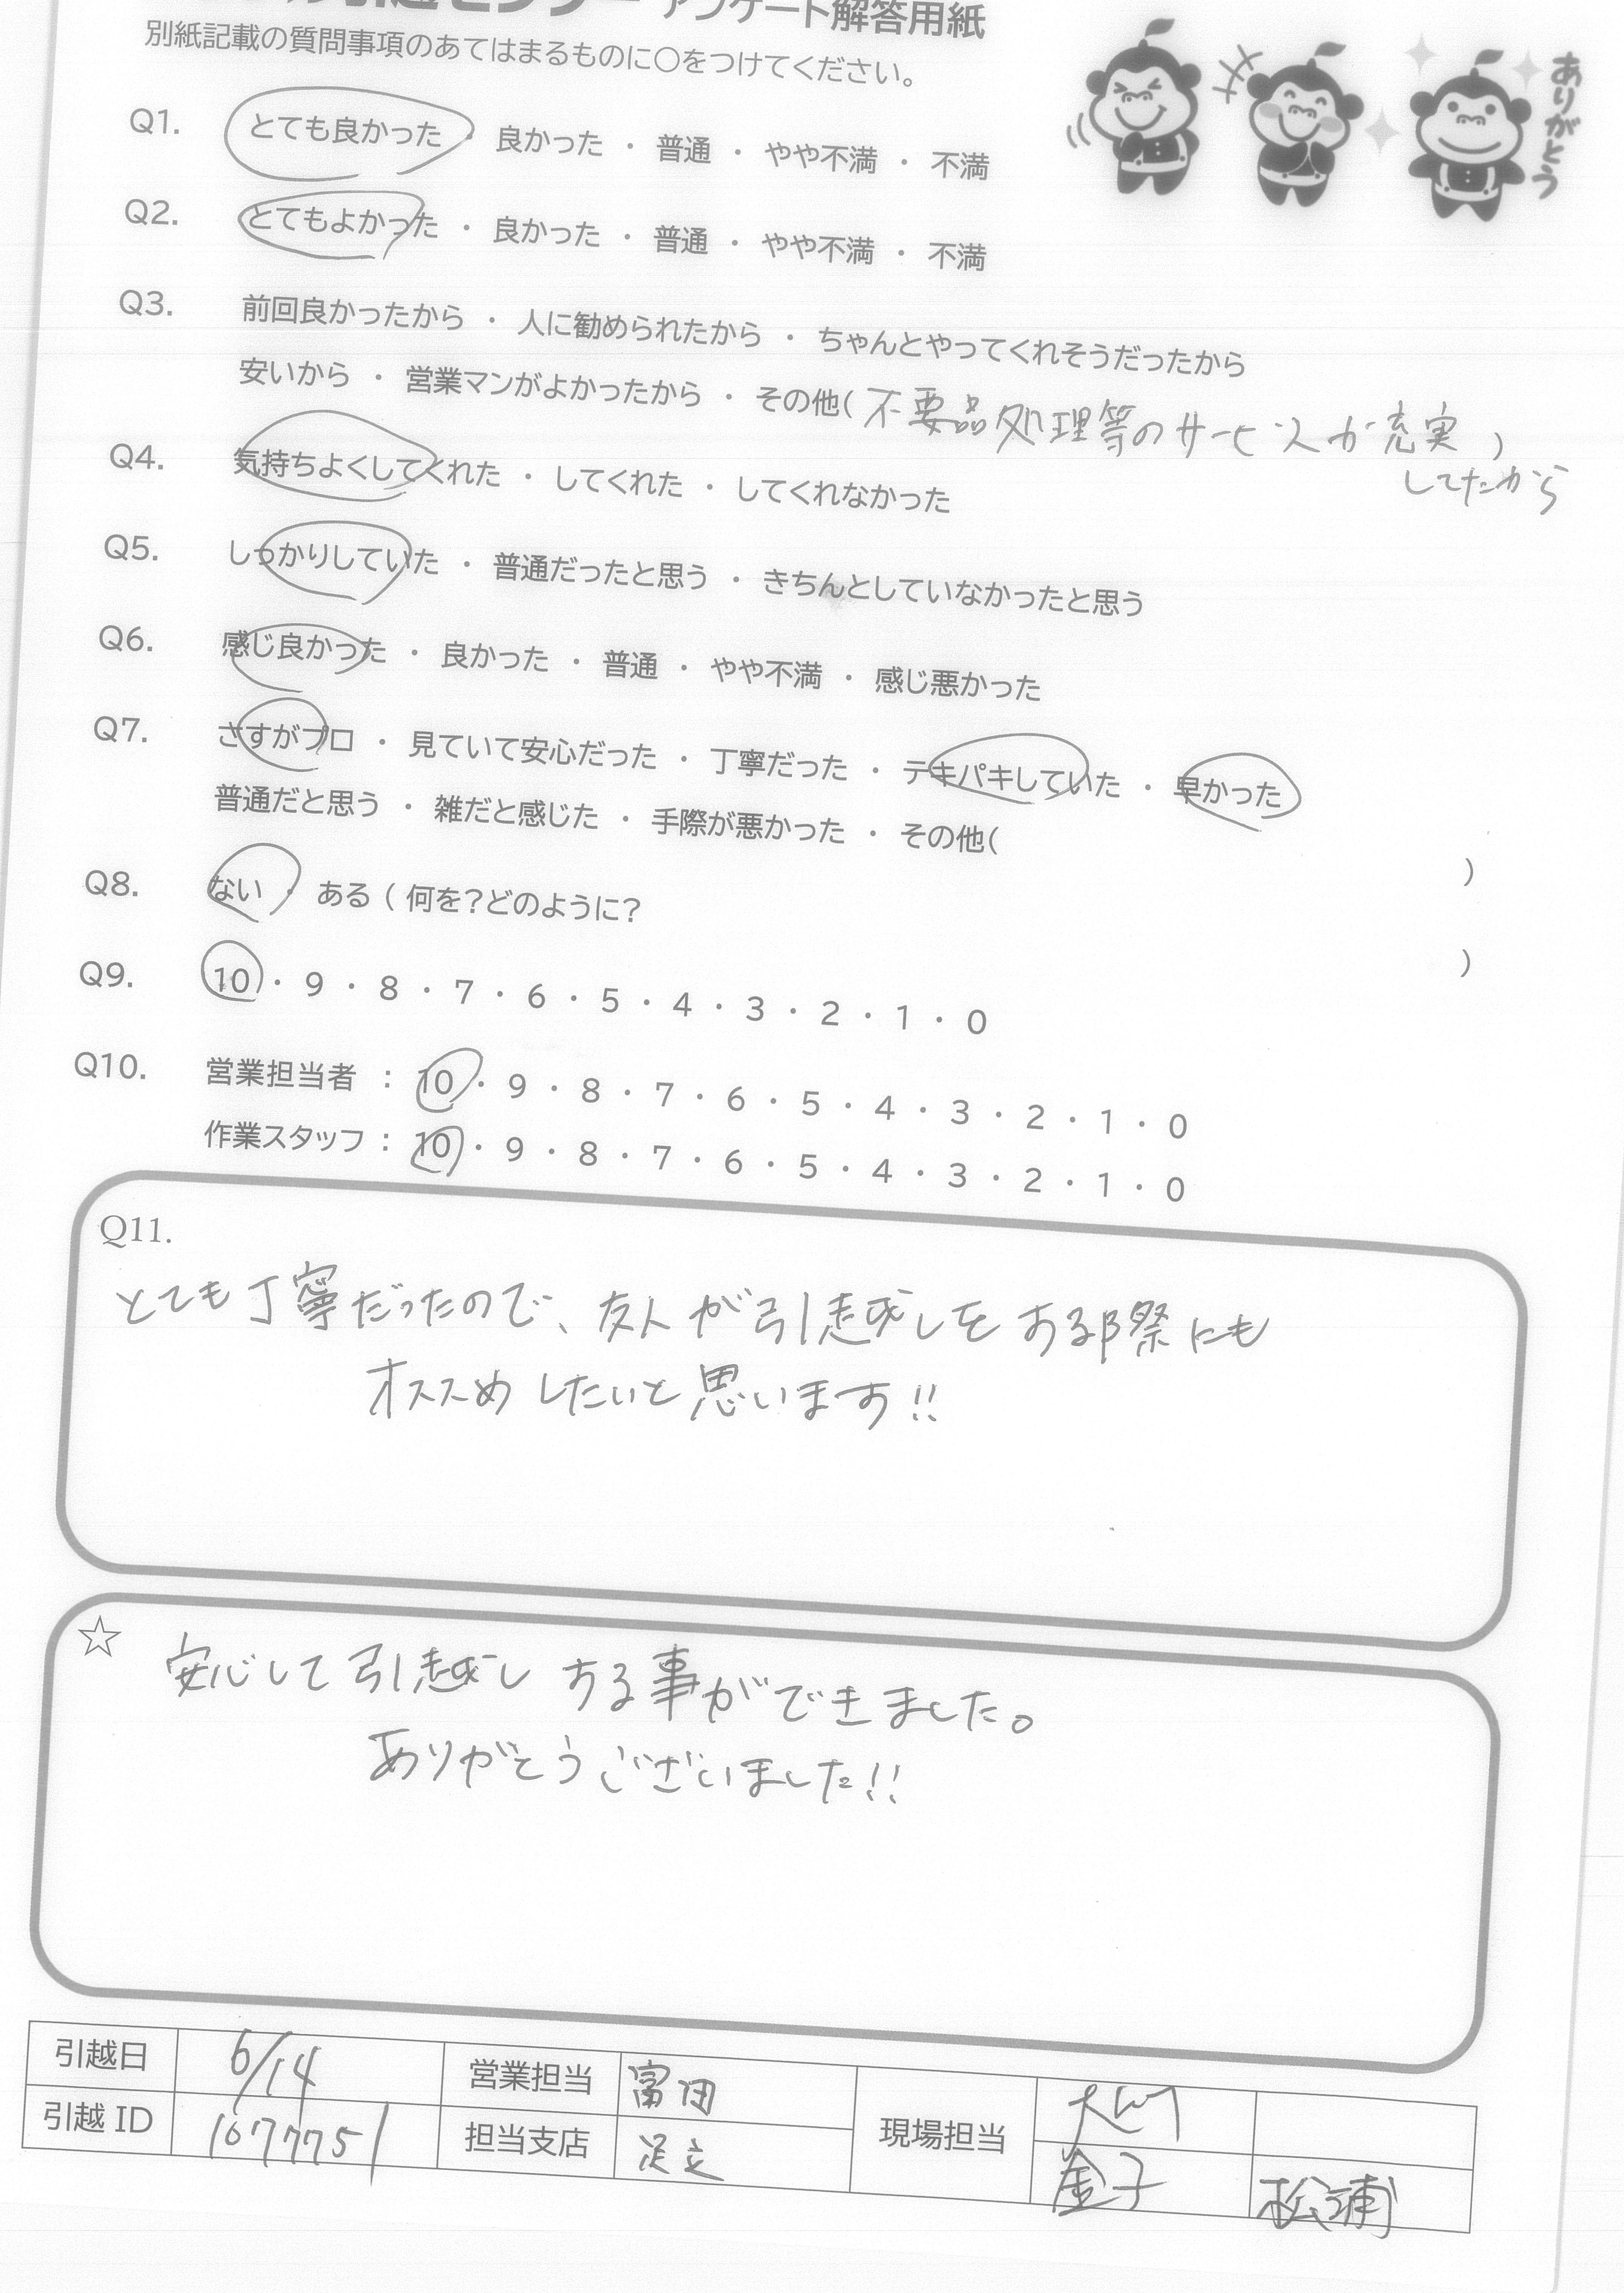 引越センター アンケート解答用紙
別紙記載の質問事項のあてはまるものに○をつけてください。
ありがとう
Q1. とても良かった ・ 良かった ・ 普通 ・ やや不満 ・ 不満
Q2. とてもよかった ・ 良かった ・ 普通 ・ やや不満 ・ 不満
Q3. 前回良かったから ・ 人に勧められたから ・ ちゃんとやってくれそうだったから
安いから ・ 営業マンがよかったから ・ その他( 不要品処理等のサービスが充実 )
してたから
Q4. 気持ちよくしてくれた ・ してくれた ・ してくれなかった
Q5. しっかりしていた ・ 普通だったと思う ・ きちんとしていなかったと思う
Q6. 感じ良かった ・ 良かった ・ 普通 ・ やや不満 ・ 感じ悪かった
Q7. さすがプロ ・ 見ていて安心だった ・ 丁寧だった ・ テキパキしていた ・ 早かった
普通だと思う ・ 雑だと感じた ・ 手際が悪かった ・ その他( )
Q8. ない ・ ある ( 何を?どのように? )
Q9. 10 ・ 9 ・ 8 ・ 7 ・ 6 ・ 5 ・ 4 ・ 3 ・ 2 ・ 1 ・ 0
Q10. 営業担当者 : 10 ・ 9 ・ 8 ・ 7 ・ 6 ・ 5 ・ 4 ・ 3 ・ 2 ・ 1 ・ 0
作業スタッフ : 10 ・ 9 ・ 8 ・ 7 ・ 6 ・ 5 ・ 4 ・ 3 ・ 2 ・ 1 ・ 0
Q11.
とても丁寧だったので、友人が引越しをする際にも
オススめしたいと思います!!
☆ 安心して引越しする事ができました。
ありがとうございました!!
引越日 6/14 営業担当 富田 現場担当
引越 ID 1077751 担当支店 足立 金子 松浦